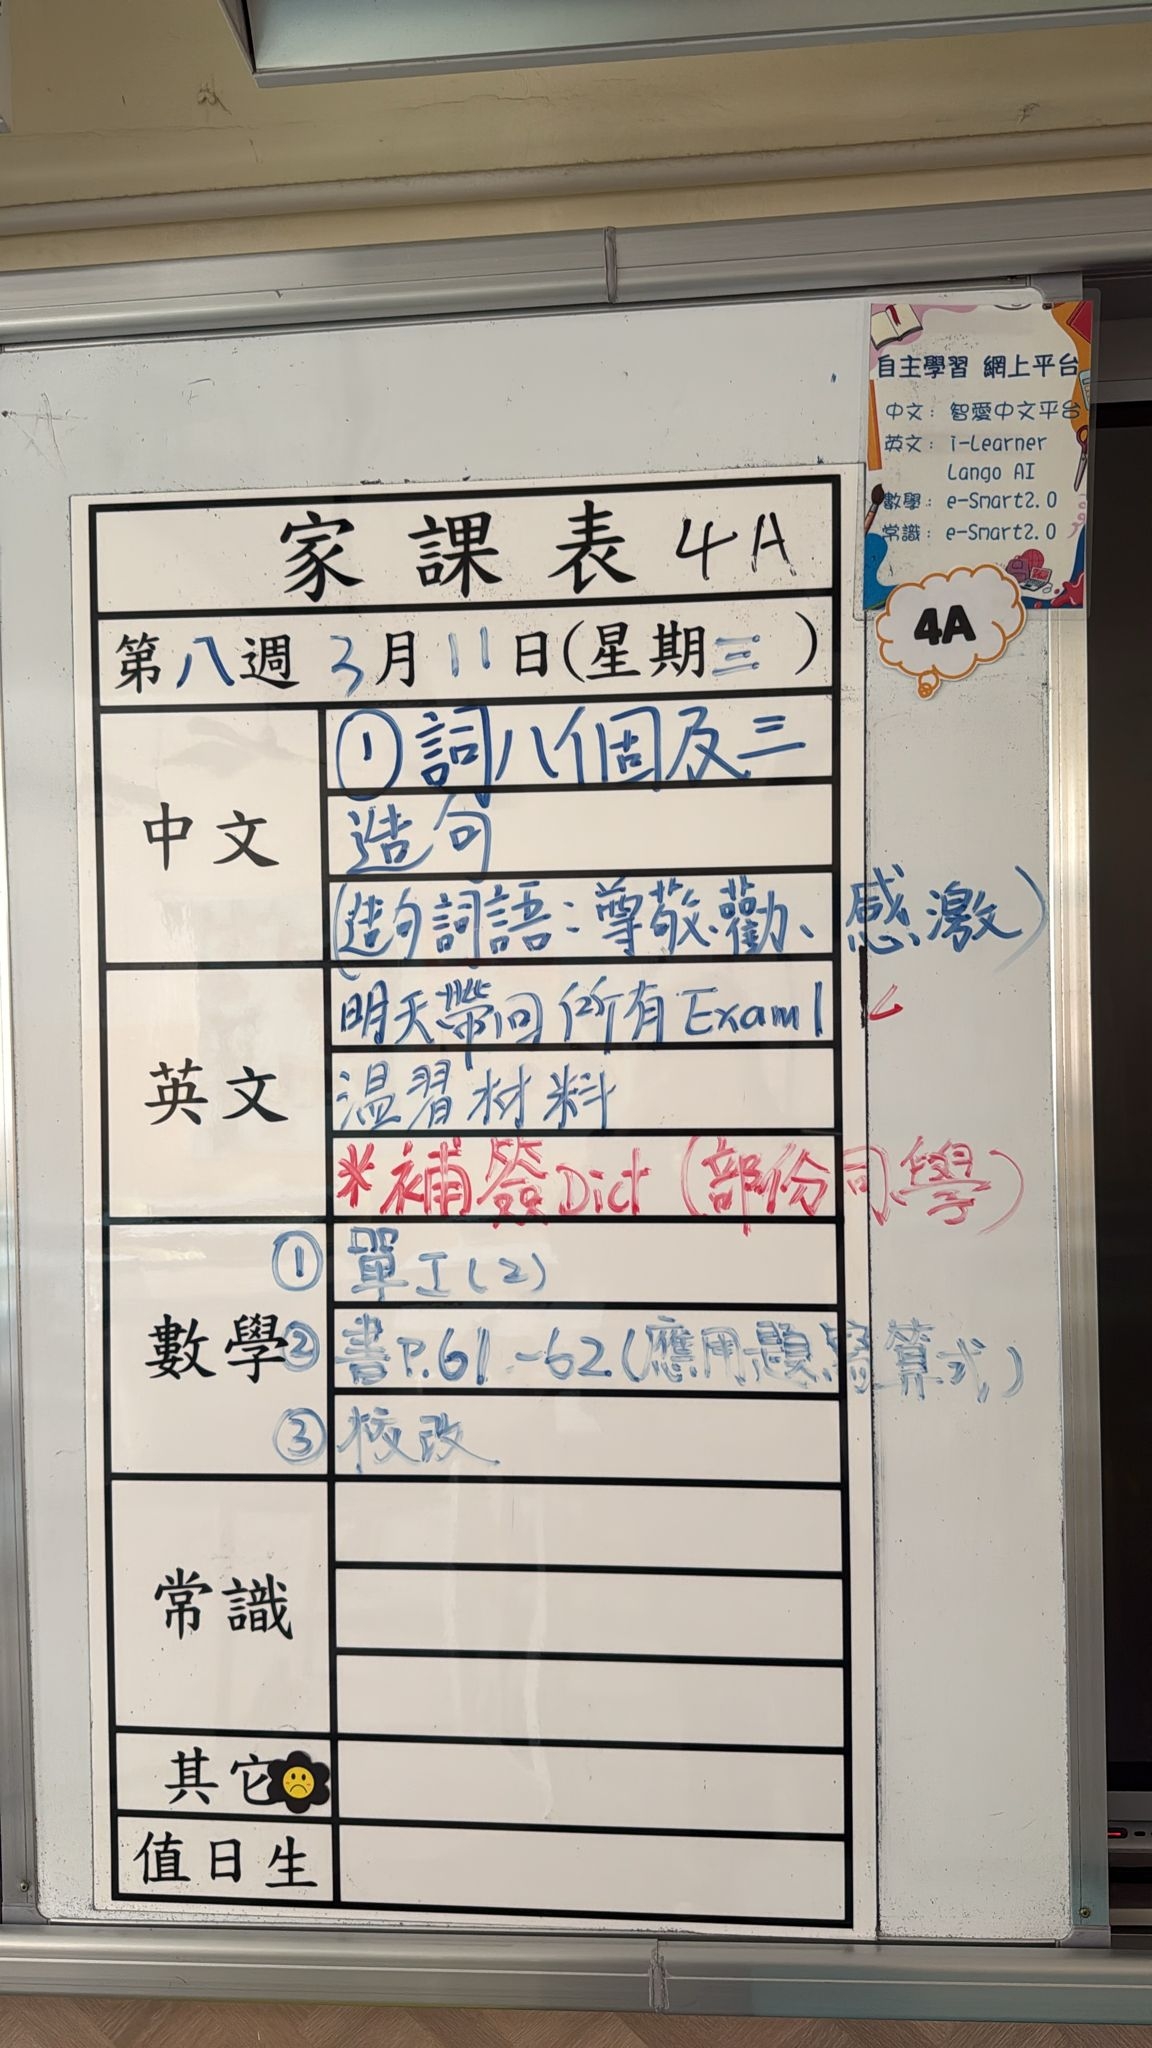 自主學習 網上平台
中文：智愛中文平台
英文：i-Learner
Lango AI
數學：e-Smart2.0
常識：e-Smart2.0
4A
家課表 4A
第八週 3月11日(星期三)
中文
①詞八個及三
造句
(造句詞語：尊敬、勸、感激)
英文
明天帶回所有Exam1
溫習材料
*補發Dict (部份同學)
數學
①單工(2)
②書P.61-62(應用題寫算式)
③校改
常識
其它
值日生